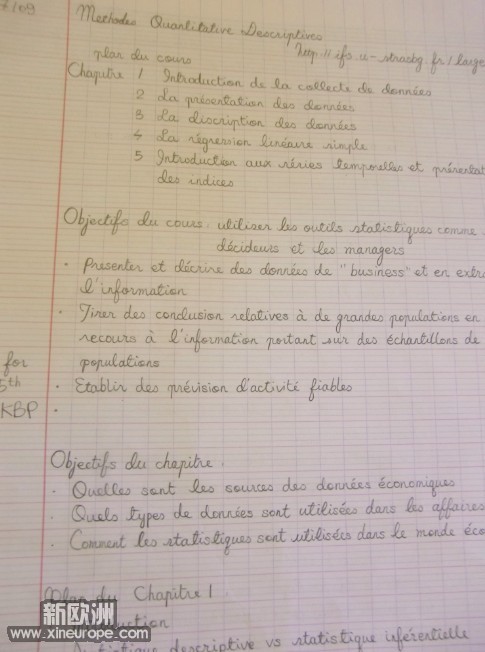 2/09
Methodes Quantitative Descriptives
http://ifs.u-strasbg.fr/large
plan du cours
Chapitre 1 Introduction de la collecte de données
2 La présentation des données
3 La discription des données
4 La régression linéaire simple
5 Introduction aux séries temporelles et présentat
des indices
Objectifs du cours : utiliser les outils statistiques comme
décideurs et les managers
· Présenter et décrire des données de "business" et en extra
l'information
· Tirer des conclusion relatives à de grandes populations en
recours à l'information portant sur des échantillons de
for populations
5th · Etablir des prévision d'activité fiables
KBP ·
Objectifs du chapitre.
· Quelles sont les sources des données économiques
· Quels types de données sont utilisées dans les affaires
· Comment les statistiques sont utilisées dans le monde éco
Plan du Chapitre 1.
duction
descriptive vs statistique iférentielle
新欧洲
www.xineurope.com